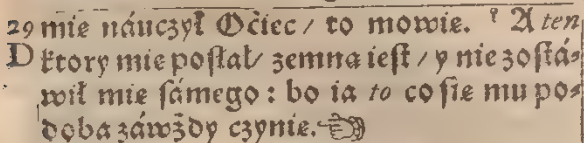 29 mie náuczył Oćiec / to mowie. ⁹ A ten
D ktory mie posłał / zemna iest / y nie zostá-
wił mie sámego : bo ia to co sie mu po-
doba záwżdy czynie.